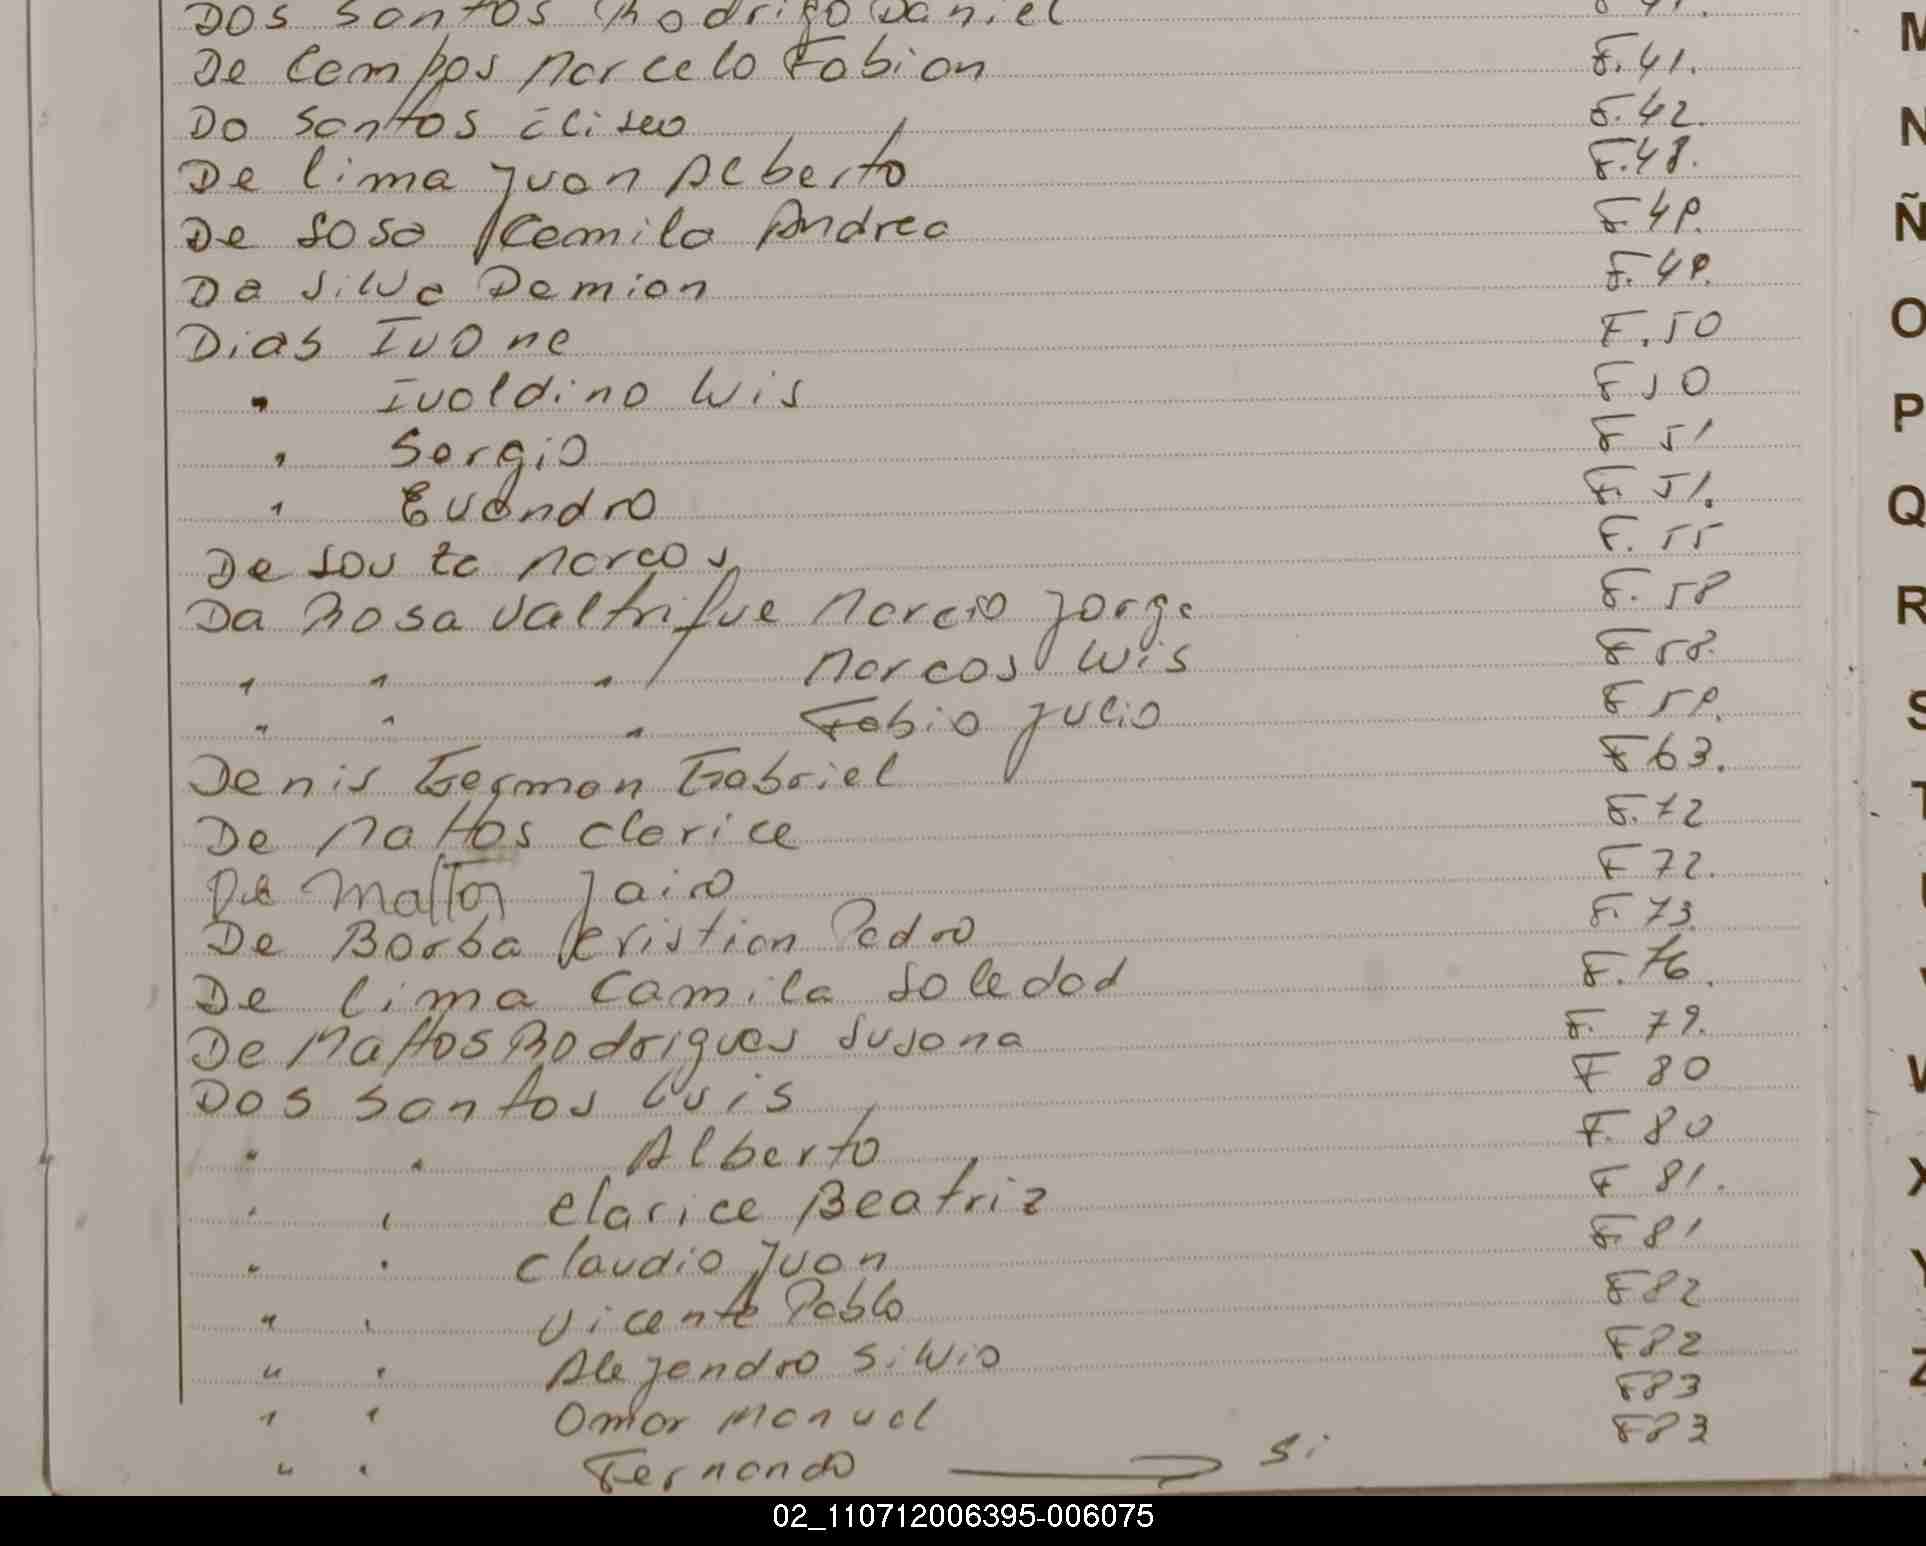 Dos Santos Rodrigo Daniel F 41.
De Campos Marcelo Fabian F. 41.
Do Santos Eliseo F. 42.
De lima Juan Alberto F. 48.
De Sosa Camila Andrea F 49.
Da Silva Damian F. 49.
Dias Ivone F. 50
" Ivaldino Luis F 50
" Sergio F 51
" Evandro F. 51.
De Souza Marcos F. 55
Da Rosa Marcio Jorge F. 58
" " " Marcos Luis F 58.
" " " Fabio Julio F 59.
Denis German Gabriel F 63.
De Mattos Clarice F. 72
De Mattos Jairo F 72.
De Borba Cristian Pedro F. 73.
De lima Camila Soledad F. 76.
De Mattos Rodrigues Susana F. 79.
Dos Santos Luis F 80
" " Alberto F. 80
" " Clarice Beatriz F 81.
" " Claudio Juan F. 81
" " Vicente Pablo F 82
" " Alejandro Silvio F 82
" " Omar Manuel F 83
" " Fernando Si F 83
M
N
Ñ
O
P
Q
R
S
T
U
V
W
X
Y
Z
02_110712006395-006075